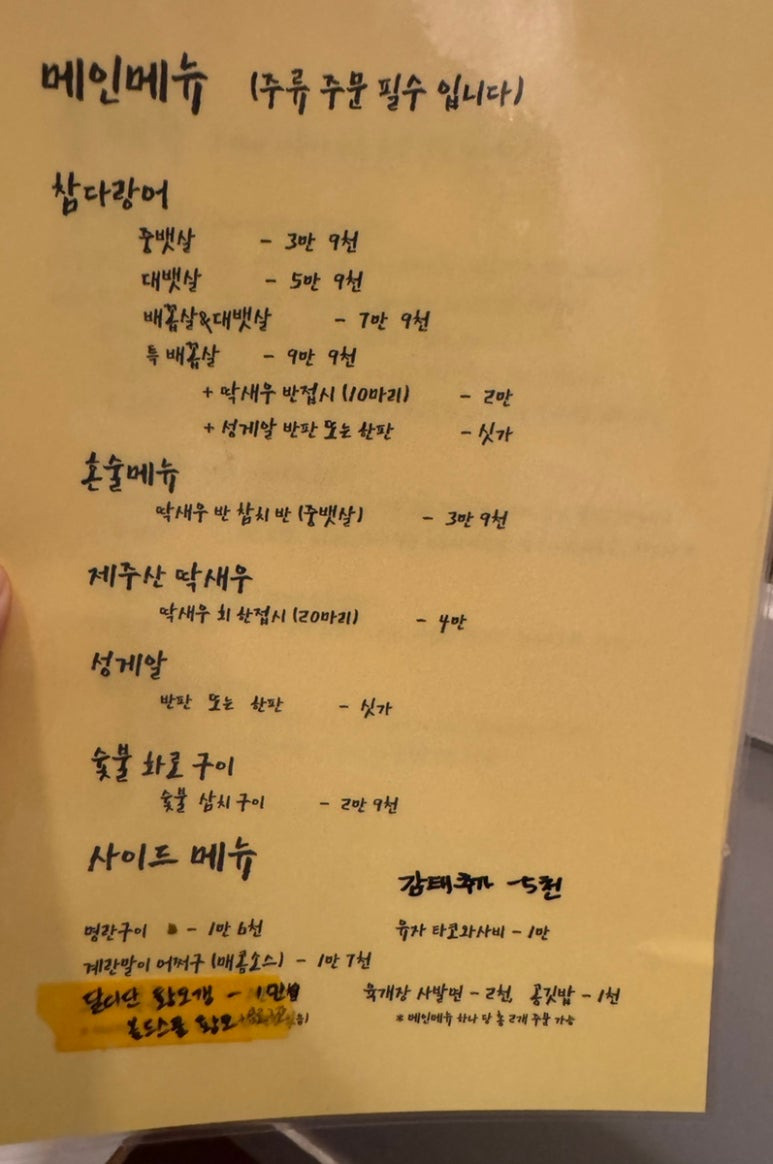 메인메뉴 (주류 주문 필수 입니다)
참다랑어
중뱃살 - 3만 9천
대뱃살 - 5만 9천
배꼽살&대뱃살 - 7만 9천
특 배꼽살 - 9만 9천
+ 딱새우 반접시 (10마리) - 2만
+ 성게알 반판 또는 한판 - 싯가
혼술메뉴
딱새우 반 참치 반 (중뱃살) - 3만 9천
제주산 딱새우
딱새우 회 한접시 (20마리) - 4만
성게알
반판 또는 한판 - 싯가
숯불 화로 구이
숯불 삼치구이 - 2만 9천
사이드 메뉴
감태추가 - 5천
명란구이 - 1만 6천 유자 타코와사비 - 1만
계란말이 어쩌구 (매콤소스) - 1만 7천
달디단 - 육개장 사발면 - 2천, 공깃밥 - 1천
* 메인메뉴 하나 당 총 2개 주문 가능